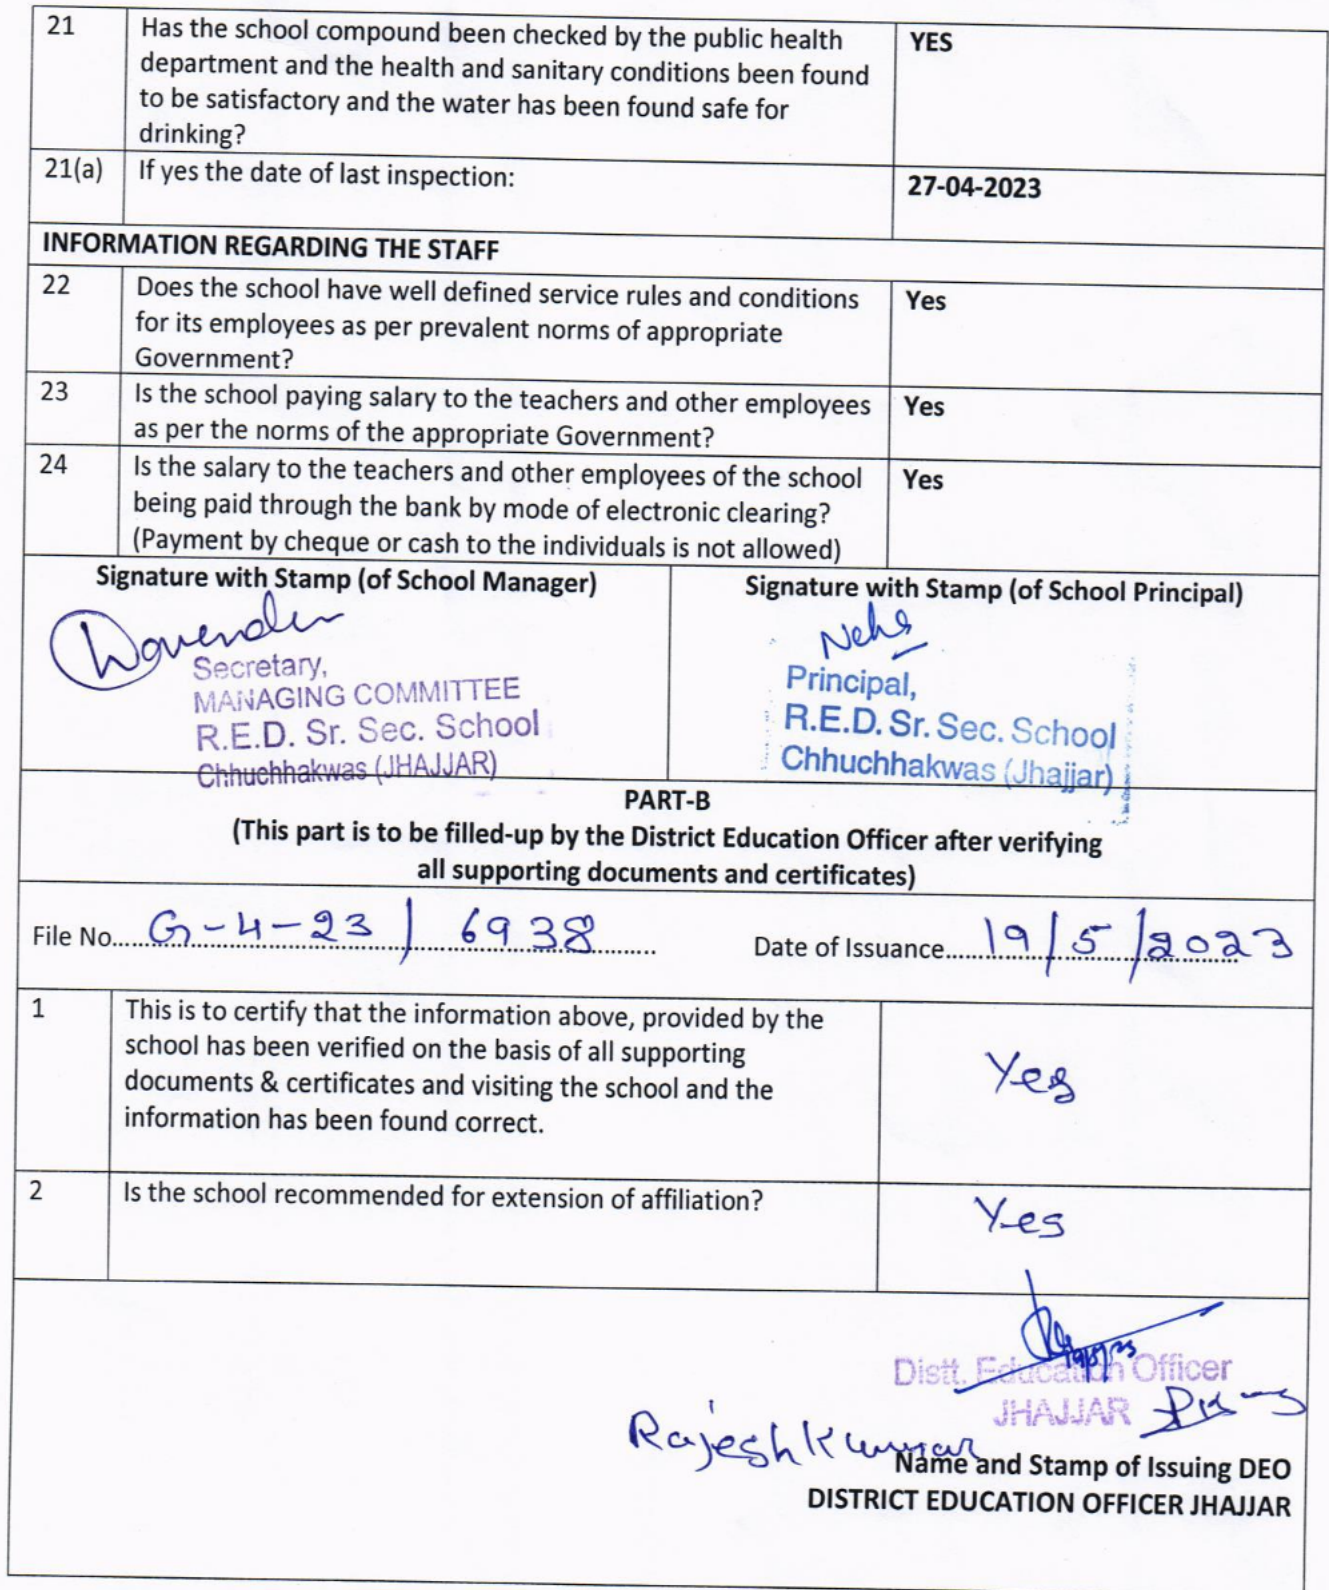 21 Has the school compound been checked by the public health YES
department and the health and sanitary conditions been found
to be satisfactory and the water has been found safe for
drinking?
21(a) If yes the date of last inspection: 27-04-2023
INFORMATION REGARDING THE STAFF
22 Does the school have well defined service rules and conditions Yes
for its employees as per prevalent norms of appropriate
Government?
23 Is the school paying salary to the teachers and other employees Yes
as per the norms of the appropriate Government?
24 Is the salary to the teachers and other employees of the school Yes
being paid through the bank by mode of electronic clearing?
(Payment by cheque or cash to the individuals is not allowed)
Signature with Stamp (of School Manager)
Secretary,
MANAGING COMMITTEE
R.E.D. Sr. Sec. School
Chhuchhakwas (JHAJJAR)
Signature with Stamp (of School Principal)
Neha
Principal,
R.E.D. Sr. Sec. School
Chhuchhakwas (Jhajjar)
PART-B
(This part is to be filled-up by the District Education Officer after verifying
all supporting documents and certificates)
File No..... G-4-23 / 6938 Date of Issuance..... 19/5/2023
1 This is to certify that the information above, provided by the Yes
school has been verified on the basis of all supporting
documents & certificates and visiting the school and the
information has been found correct.
2 Is the school recommended for extension of affiliation? Yes
Distt. Education Officer
JHAJJAR
Rajesh Kumar
Name and Stamp of Issuing DEO
DISTRICT EDUCATION OFFICER JHAJJAR